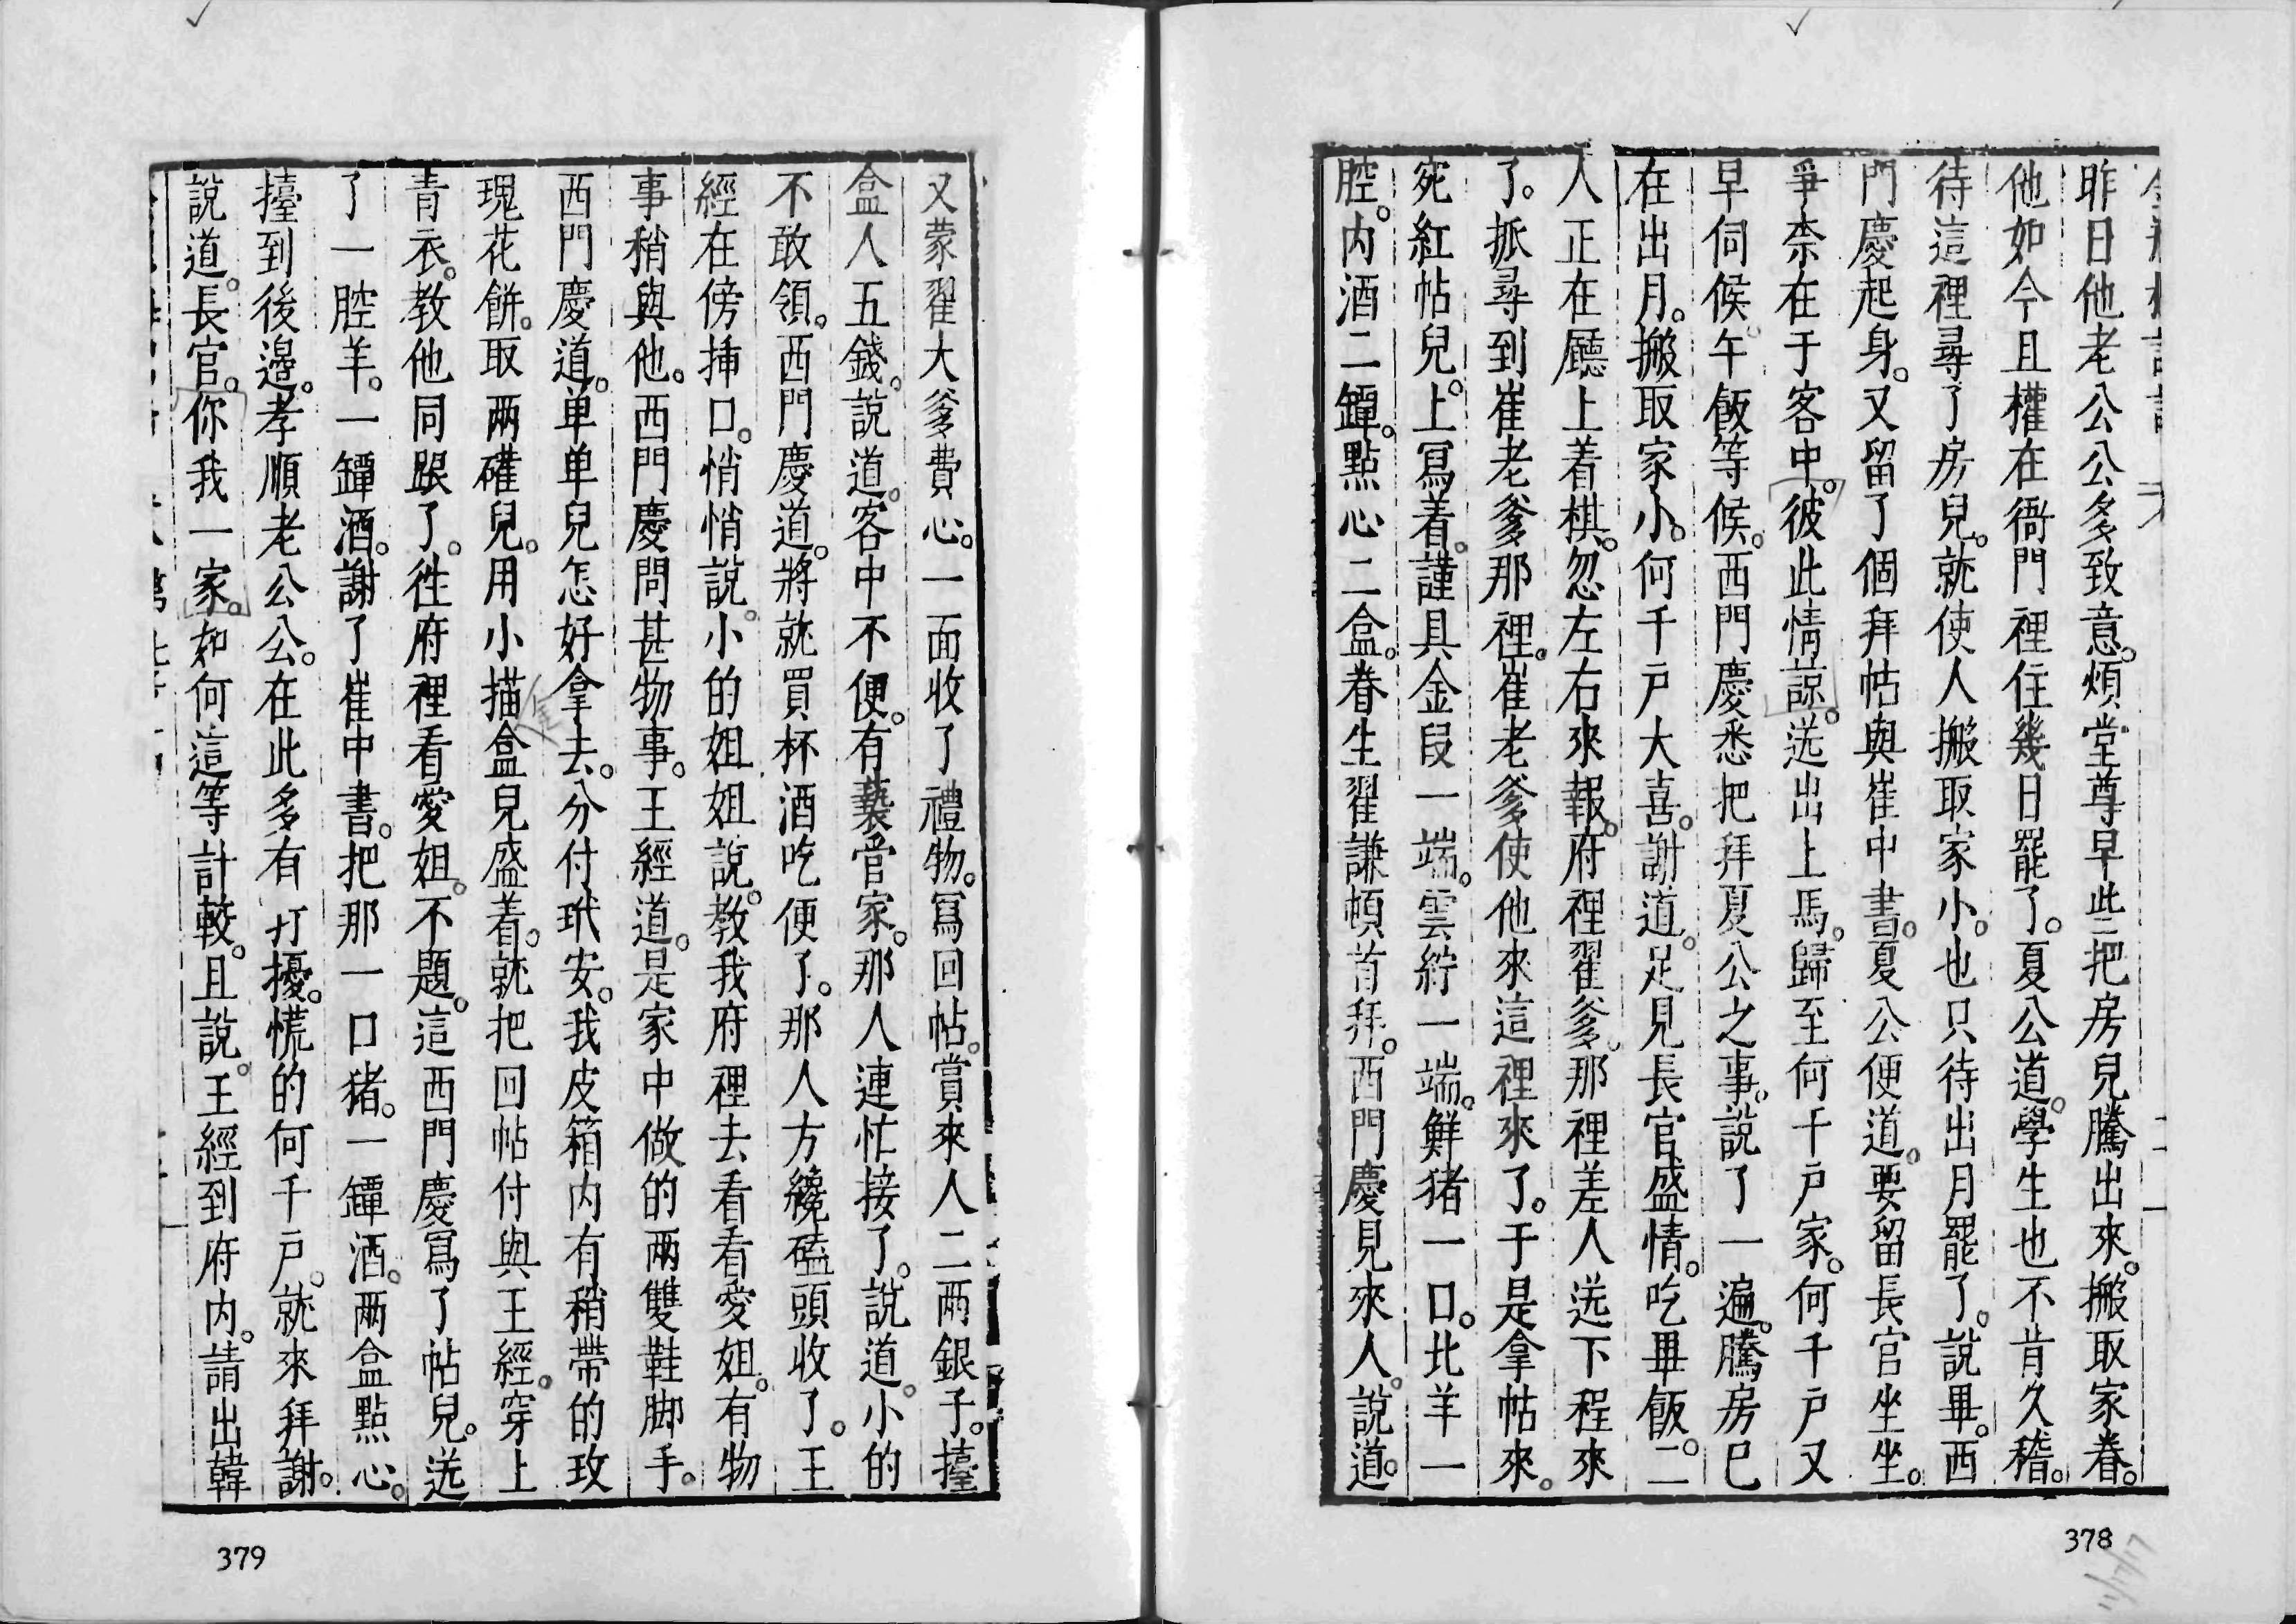 昨日他老公公多致意。煩堂尊早些把房兒騰出來。搬取家眷。
他如今且權在衙門裡住幾日罷了。夏公道。學生也不肯久稽。
待這裡尋了房兒。就使人搬取家小。也只待出月罷了。說畢。西
門慶起身。又留了個拜帖與崔中書。夏公便道。要留長官坐坐。
爭柰在于客中。彼此情諒。送出上馬。歸至何千戶家。何千戶又
早伺候午飯等候。西門慶悉把拜夏公之事。說了一遍。騰房已
在出月。搬取家小。何千戶大喜。謝道。足見長官盛情。吃畢飯。二
人正在廳上着棋。忽左右來報。府裡翟爹。那裡差人送下程來
了。抓尋到崔老爹那裡。崔老爹使他來這裡來了。于是拿帖來。
宛紅帖兒。上寫着。謹具金段一端。雲紵一端。鮮猪一口。北羊一
腔。内酒二罈。點心二盒。眷生翟謙頓首拜。西門慶見來人。說道。
378
又蒙翟大爹費心。一面收了禮物。寫回帖。賞來人二兩銀子。擡
盒人五錢。說道。客中不便。有䙝管家。那人連忙接了。說道。小的
不敢領。西門慶道。將就買杯酒吃便了。那人方纔磕頭收了。王
經在傍揷口。悄悄說。小的姐姐說。教我府裡去看看愛姐。有物
事稍與他。西門慶問甚物事。王經道。是家中做的兩雙鞋脚手。
西門慶道。单单兒怎好拿去。分付玳安。我皮箱内有稍帶的玫
瑰花餅。取兩礶兒。用小描盒兒盛着。就把回帖付與王經。穿上
青衣。教他同跟了。徃府裡看愛姐。不題。這西門慶寫了帖兒。送
了一腔羊。一罈酒。謝了崔中書。把那一口猪。一罈酒。兩盒點心。
擡到後邊。孝順老公公。在此多有打擾。慌的何千戶。就來拜謝。
說道。長官。你我一家。如何這等計較。且說。王經到府内。請出韓
379